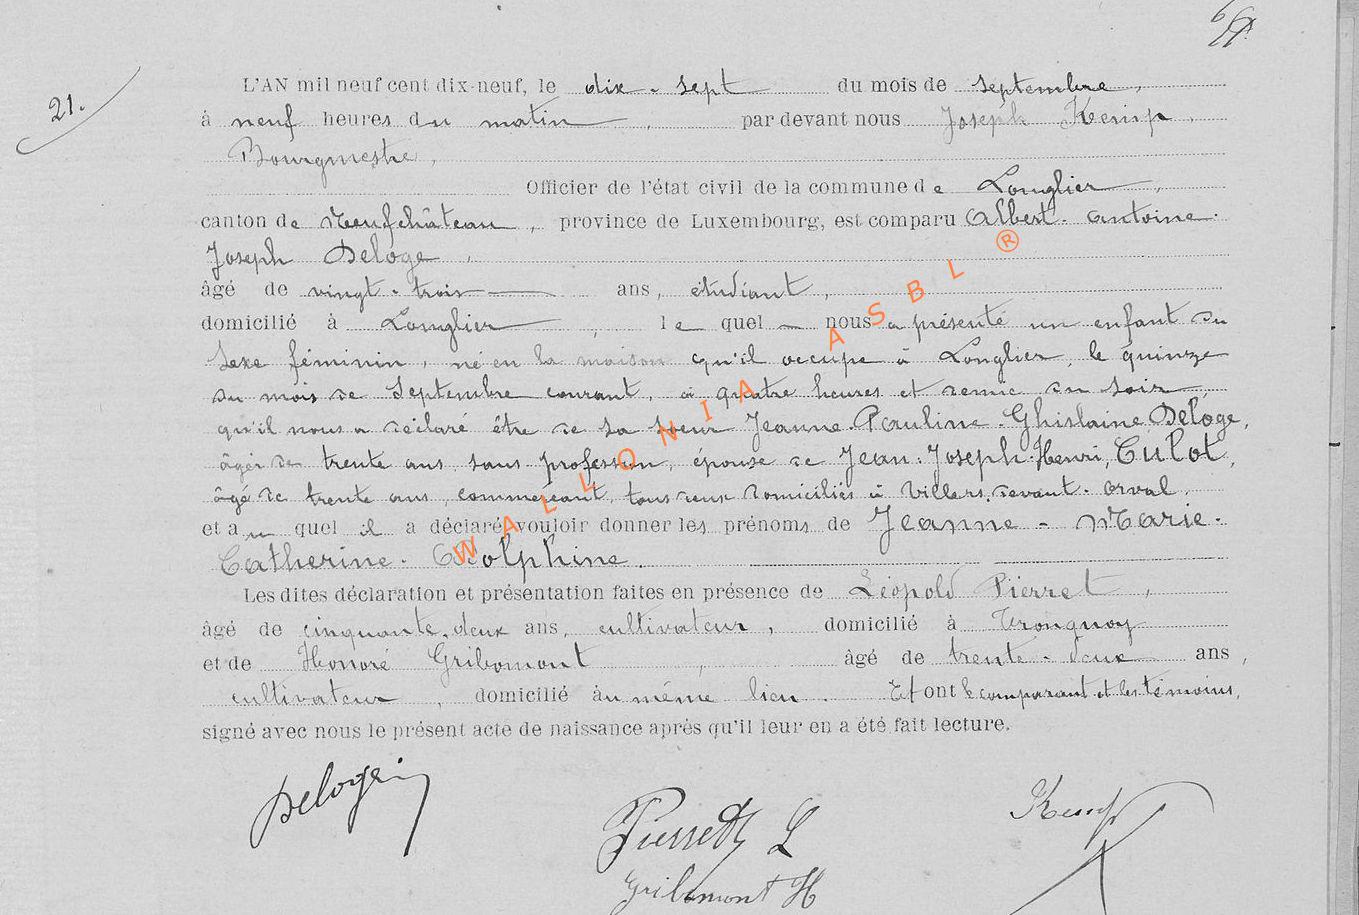 21.
L'AN mil neuf cent dix-neuf, le dix-sept du mois de septembre,
à neuf heures du matin, par devant nous Joseph Kemp,
Bourgmestre,
Officier de l'état civil de la commune de Longlier,
canton de Neufchâteau, province de Luxembourg, est comparu Albert-Antoine-
Joseph Deloge,
âgé de vingt-trois ans, étudiant,
domicilié à Longlier, lequel nous a présenté un enfant du
sexe féminin, né en la maison qu'il occupe à Longlier, le quinze
du mois de Septembre courant, à quatre heures et demie du soir,
qu'il nous a déclaré être de sa sœur Jeanne-Pauline-Ghislaine Deloge,
âgée de trente ans, sans profession, épouse de Jean-Joseph-Henri, Culot,
âgé de trente ans, commerçant, tous deux domiciliés à Villers-devant-Orval,
et auquel il a déclaré vouloir donner les prénoms de Jeanne-Marie-
Catherine-Adolphine.
Les dites déclaration et présentation faites en présence de Léopold Pierret,
âgé de cinquante-deux ans, cultivateur, domicilié à Tronquoy
et de Honoré Gribomont, âgé de trente-deux ans,
cultivateur, domicilié au même lieu. Et ont le comparant et les témoins,
signé avec nous le présent acte de naissance après qu'il leur en a été fait lecture.
Deloge
Pierret L
Kemp
Gribomont H
WALLONIA ASBL ®